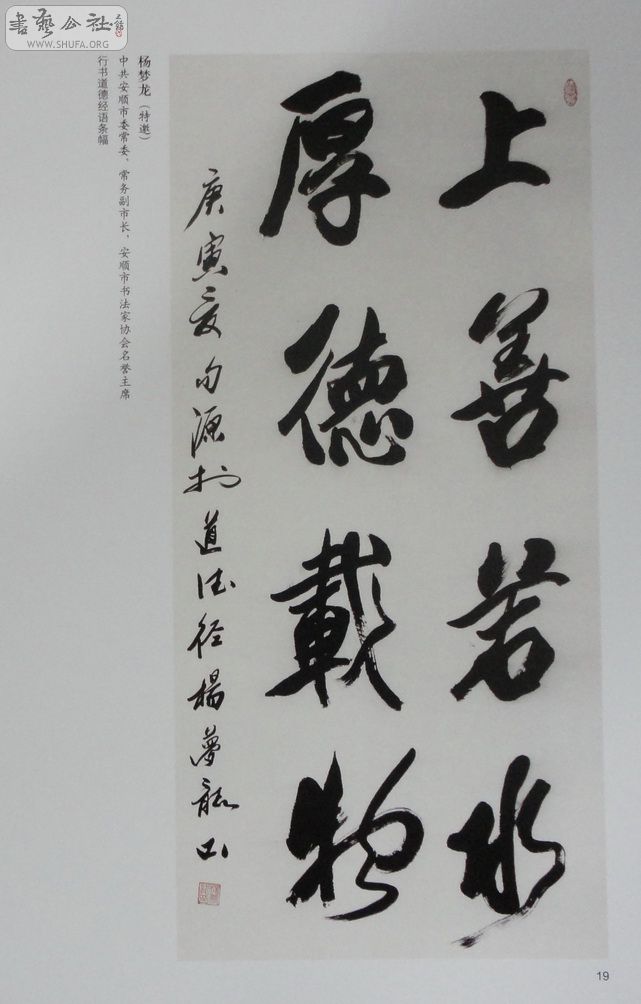 書藝公社
WWW.SHUFA.ORG
上善若水
厚德載物
庚寅夏句源於道德径楊夢龍书
杨梦龙（特邀）
中共安顺市委常委、常务副市长、安顺市书法家协会名誉主席
行书道德经语条幅
19